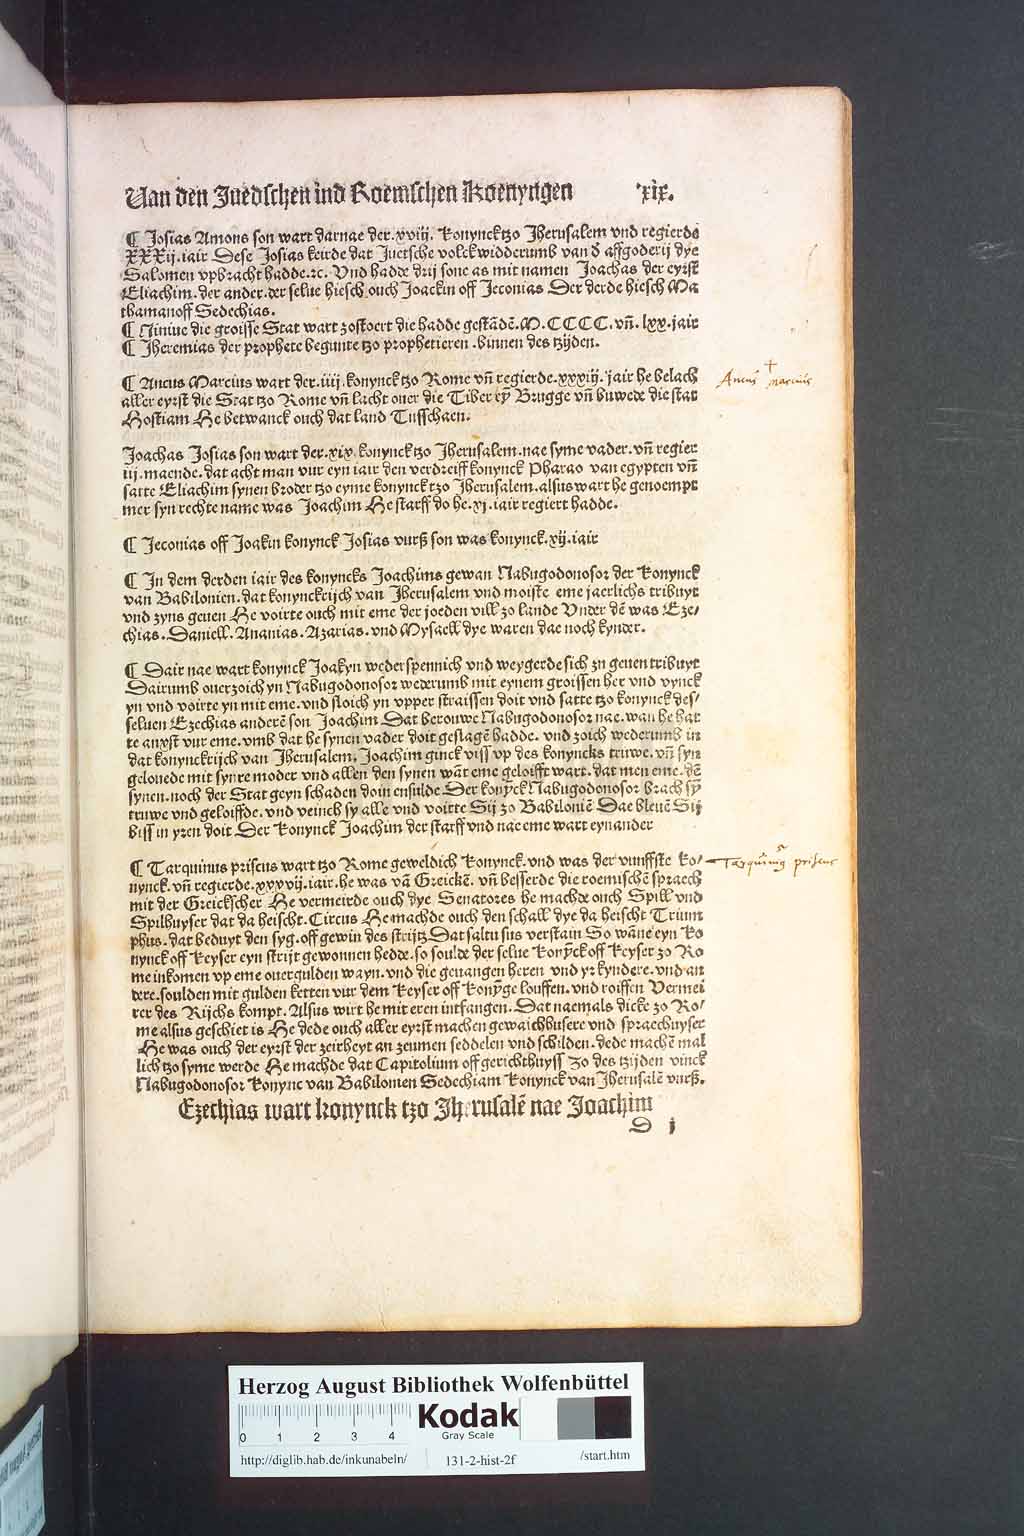 Van den Juedschen ind Roemschen Koenyngen xix.
¶ Josias Amons son wart darnae der .xviij. konynck tzo Jherusalem vnd regierde
XXXij. iair Dese Josias keirde dat Juetsche volck widderumb van d̕ affgoderij dye
Salomen vpbracht hadde. ꝛc. Vnd hadde drij sone as mit namen Joachas der eyrst
Eliachim. der ander. der selue hiesch ouch Joackin off Jeconias Der derde hiesch Ma
thamanoff Sedechias.
¶ Niniue die groisse Stat wart zostoert die hadde gestãdẽ. M. CCCC. vñ. lxx. jair
¶ Jheremias der prophete begunte tzo prophetieren .binnen des tzijden.
¶ Ancus Marcius wart der .iiij. konynck tzo Rome vñ regierde .xxxiij. jair he belach
aller eyrst die Stat tzo Rome vñ lacht ouer die Tiber eỹ Brugge vñ buwede die stat
Hostiam He betwanck ouch dat land Tusschaen.
Ancus marcius
Joachas Josias son wart der .xix. konynck tzo Jherusalem. nae syme vader. vñ regier
iij. maende. dat acht man vur eyn iair den verdreiff konynck Pharao van egypten vñ
satte Eliachim synen broder tzo eyme konynck tzo Jherusalem. alsus wart he genoempt
mer syn rechte name was Joachim He starff do he .xj. iair regiert hadde.
¶ Jeconias off Joakin konynck Josias vurß son was konynck .xij. iair
¶ In dem derden iair des konyncks Joachims gewan Nabugodonosor der konynck
van Babilonien. dat konynckrijch van Jherusalem vnd moiste eme jaerlichs tribuyt
vnd zyns geuen He voirte ouch mit eme der joeden vill zo lande Vnder dẽ was Eze/
chias. Daniell. Ananias. Azarias. vnd Mysaell dye waren dae noch kynder.
¶ Dair nae wart konynck Joakyn wederspennich vnd weygerde sich zu geuen tribuyt
Dairumb ouerzoich yn Nabugodonosor wederumb mit eynem groissen her vnd vynck
yn vnd voirte yn mit eme. vnd sloich yn vpper straissen doit vnd satte tzo konynck des/
seluen Ezechias anderẽ son Joachim Dat berouwe Nabugodonosor nae. wan he hat
te anxst vur eme. vmb dat he synen vader doit geslagẽ hadde. vnd zoich wederumb in
dat konynckrijch van Jherusalem. Joachim ginck viss vp des konyncks truwe. vñ syn
gelouede mit synre moder vnd allen den synen wãt eme geloifft wart. dat men eme. dẽ
synen. noch der Stat geyn schaden doin ensulde Der konỹck Nabugodonosor brach sỹ
truwe vnd geloiffde. vnd veinch sy alle vnd voirte Sij zo Babiloniẽ Dae bleuẽ Sij
biss in yren doit Der konynck Joachim der starff vnd nae eme wart eyn ander
¶ Tarquinus priscus wart tzo Rome geweldich konynck. vnd was der vunffste ko/
nynck. vñ regierde .xxxvij. iair. he was vã Greickẽ. vñ besserde die roemischẽ spraech
Tarquinius priscus
mit der Greickscher He vermeirde ouch dye Senatores he machde ouch Spill vnd
Spilhuyser dat da heischt. Circus He machde ouch den schall dye da heischt Trium
phus. dat beduyt den syg. off gewin des strijtz Dat saltu sus verstain So wãne eyn ko
nynck off keyser eyn strijt gewonnen hedde. so soulde der selue konỹck off keyser zo Ro
me inkomen vp eme ouergulden wayn. vnd die geuangen heren vnd yr kyndere. vnd an
dere. soulden mit gulden ketten vur dem keyser off konỹge louffen. vnd roiffen Vermei
rer des Rijchs kompt. Alsus wirt he mit eren intfangen. Dat naemals dicke zo Ro/
me alsus geschiet is He dede ouch aller eyrst machen gewaichhusere vnd spraechuyser
He was ouch der eyrst der zeirheyt an zeumen seddelen vnd schilden. dede machẽ mal
lich tzo syme werde He machde dat Capitolium off gerichthuyss Zo des tzijden vinck
Nabugodonosor konync van Babilonien Sedechiam konynck van Jherusalẽ vurß.
Ezechias wart konynck tzo Jherusalẽ nae Joachim
D j
Herzog August Bibliothek Wolfenbüttel
0 1 2 3 4
Kodak
Gray Scale
http://diglib.hab.de/inkunabeln/ 131-2-hist-2f /start.htm